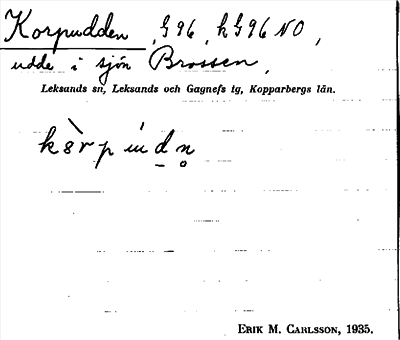 Korpudden, G96, kG96 NO,
udde i sjön Brossen,
Leksands sn, Leksands och Gagnefs tg, Kopparbergs län.
ERIK M. CARLSSON, 1935.